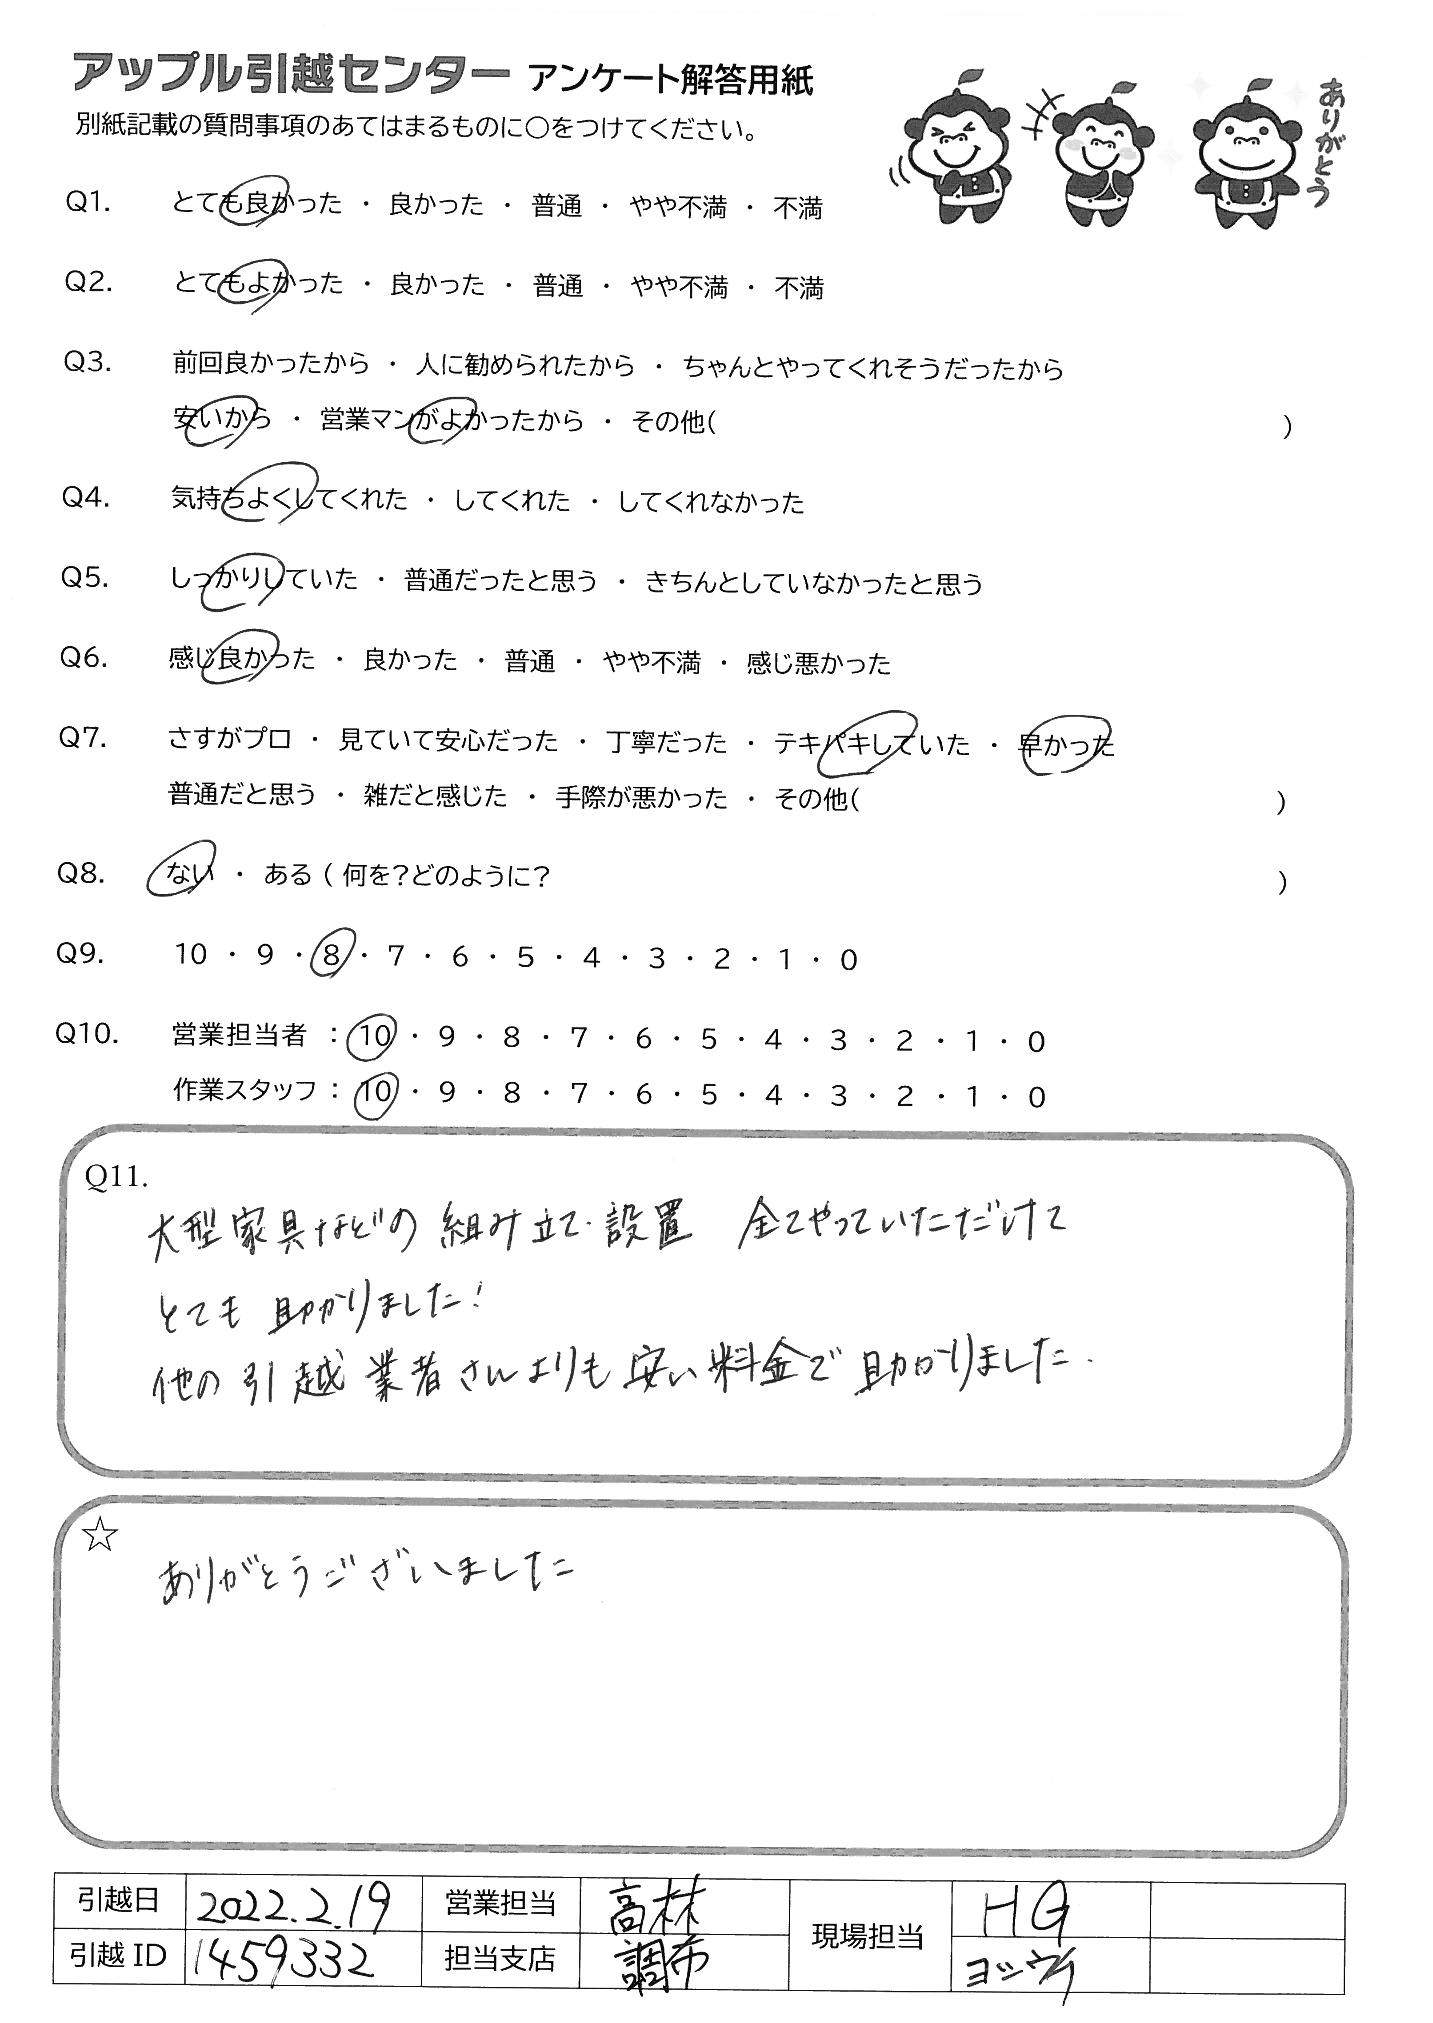 アップル引越センター アンケート解答用紙
別紙記載の質問事項のあてはまるものに○をつけてください。
ありがとう
Q1. とても良かった ・ 良かった ・ 普通 ・ やや不満 ・ 不満
Q2. とてもよかった ・ 良かった ・ 普通 ・ やや不満 ・ 不満
Q3. 前回良かったから ・ 人に勧められたから ・ ちゃんとやってくれそうだったから
安いから ・ 営業マンがよかったから ・ その他( )
Q4. 気持ちよくしてくれた ・ してくれた ・ してくれなかった
Q5. しっかりしていた ・ 普通だったと思う ・ きちんとしていなかったと思う
Q6. 感じ良かった ・ 良かった ・ 普通 ・ やや不満 ・ 感じ悪かった
Q7. さすがプロ ・ 見ていて安心だった ・ 丁寧だった ・ テキパキしていた ・ 早かった
普通だと思う ・ 雑だと感じた ・ 手際が悪かった ・ その他( )
Q8. ない ・ ある ( 何を?どのように? )
Q9. 10 ・ 9 ・ 8 ・ 7 ・ 6 ・ 5 ・ 4 ・ 3 ・ 2 ・ 1 ・ 0
Q10. 営業担当者 : 10 ・ 9 ・ 8 ・ 7 ・ 6 ・ 5 ・ 4 ・ 3 ・ 2 ・ 1 ・ 0
作業スタッフ : 10 ・ 9 ・ 8 ・ 7 ・ 6 ・ 5 ・ 4 ・ 3 ・ 2 ・ 1 ・ 0
Q11.
大型家具などの組み立て・設置 全てやっていただけて
とても助かりました!
他の引越業者さんよりも安い料金で助かりました.
☆
ありがとうございました
引越日 2022.2.19 営業担当 高林 現場担当 HG
引越 ID 1459332 担当支店 調布